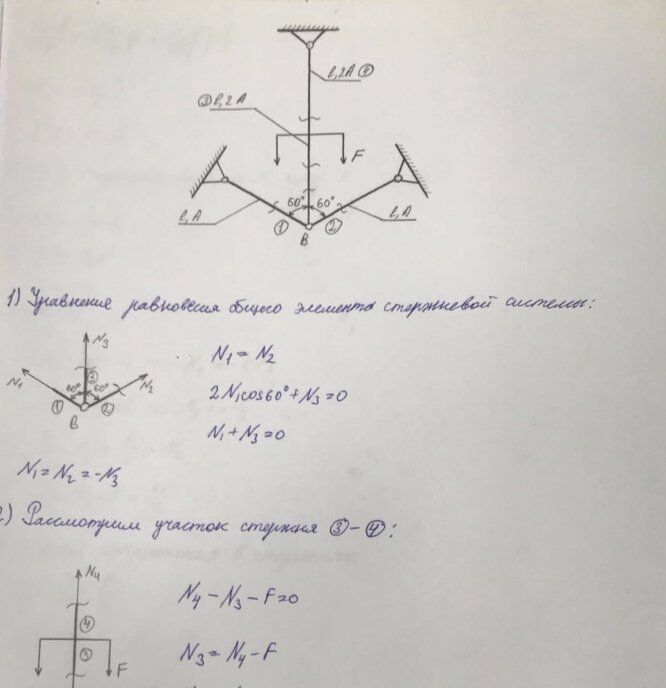 ℓ, 2A ④
③ ℓ, 2A
F
60° 60°
ℓ, A
ℓ, A
① ②
B
1) Уравнения равновесия общего элемента стержневой системы:
N₃
N₁
60° 60°
③
N₂
① ②
B
N₁ = N₂
2N₁cos60° + N₃ = 0
N₁ + N₃ = 0
N₁ = N₂ = -N₃
2) Рассмотрим участок стержня ③-④:
N₄
④
③
F
N₄ - N₃ - F = 0
N₃ = N₄ - F